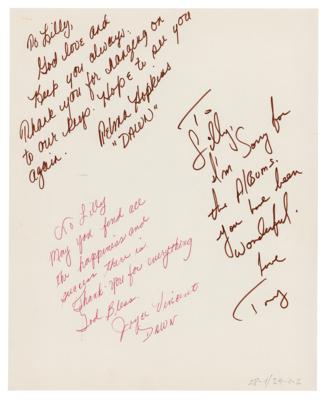 To Lilly,
God love and
Keep you always.
Thank you for hanging on
to our keys. Hope to see you
again.
Telma Hopkins
"DAWN"
To
Lilly,
I'm Sorry for
the Albums.
you have been
Wonderful.
Love
Tony
To Lilly
May you find all
the happiness and
success there is
Thank-You for everything
God Bless
Joyce Vincent
DAWN